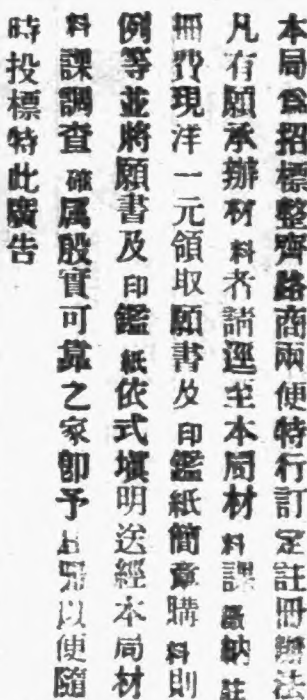 本局為招標整齊路商兩便特行訂定註冊辦法
凡有願承辦材料者請逕至本局材料課繳納註
冊費現洋一元領取願書及印鑑紙簡章購料則
例等並將願書及印鑑紙依式塡明送經本局材
料課調查確属殷實可靠之家卽予註冊以便隨
時投標特此廣告